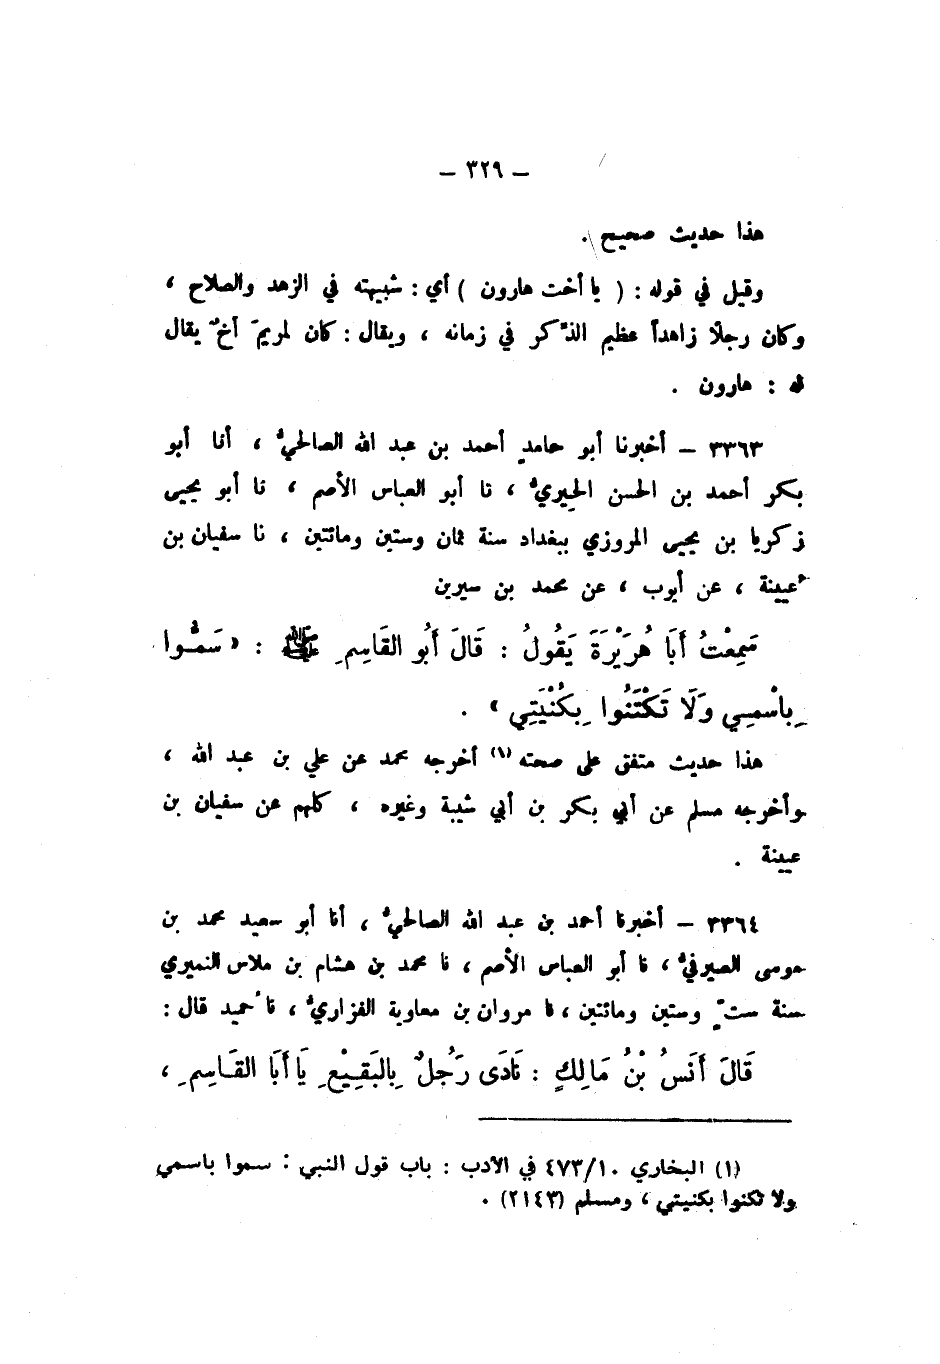 – ٣٢٩ –
هذا حديث صحيح .
وقيل في قوله : ( يا أخت هارون ) أي : شبيهته في الزهد والصلاح ،
وكان رجلاً زاهداً عظيم الذّكر في زمانه ، ويقال : كان لمريمَ أخٌ يقال
له : هارون .
٣٣٦٣ – أخبرنا أبو حامدٍ أحمد بن عبد الله الصالحيُّ ، أنا أبو
بكر أحمد بن الحسن الحِيريُّ ، نا أبو العباس الأصم ، نا أبو يحيى
زكريا بن يحيى المروزي ببغداد سنة ثمان وستين ومائتين ، نا سفيان بن
عيينة ، عن أيوب ، عن محمد بن سيرين
سَمِعْتُ أَبَا هُرَيْرَةَ يَقُولُ : قَالَ أَبُو القَاسِمِ ﷺ : « سَمُّوا
بِاسْمِي وَلَا تَكْتَنُوا بِكُنْيَتِي » .
هذا حديث متفق على صحته (١) أخرجه محمد عن علي بن عبد الله ،
وأخرجه مسلم عن أبي بكر بن أبي شيبة وغيره ، كلهم عن سفيان بن
عيينة .
٣٣٦٤ – أخبرنا أحمد بن عبد الله الصالحيُّ ، أنا أبو سعيد محمد بن
موسى الصيرفيُّ ، نا أبو العباس الأصم ، نا محمد بن هشام بن ملاس النميري
سنة ستٍّ وستين ومائتين ، نا مروان بن معاوية الفزاريُّ ، نا حميد قال :
قَالَ أَنَسُ بْنُ مَالِكٍ : نَادَى رَجُلٌ بِالبَقِيْعِ يَا أَبَا القَاسِمِ ،
(١) البخاري ٤٧٣/١٠ في الأدب : باب قول النبي : سموا باسمي
ولا تكنوا بكنيتي ، ومسلم (٢١٤٣) .